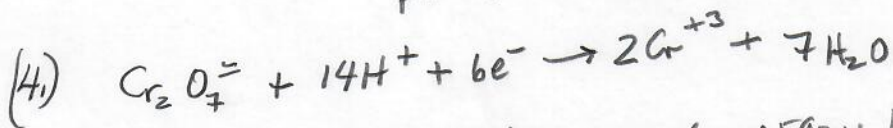 (4.) Cr₂O₇⁼ + 14H⁺ + 6e⁻ → 2Cr⁺³ + 7H₂O